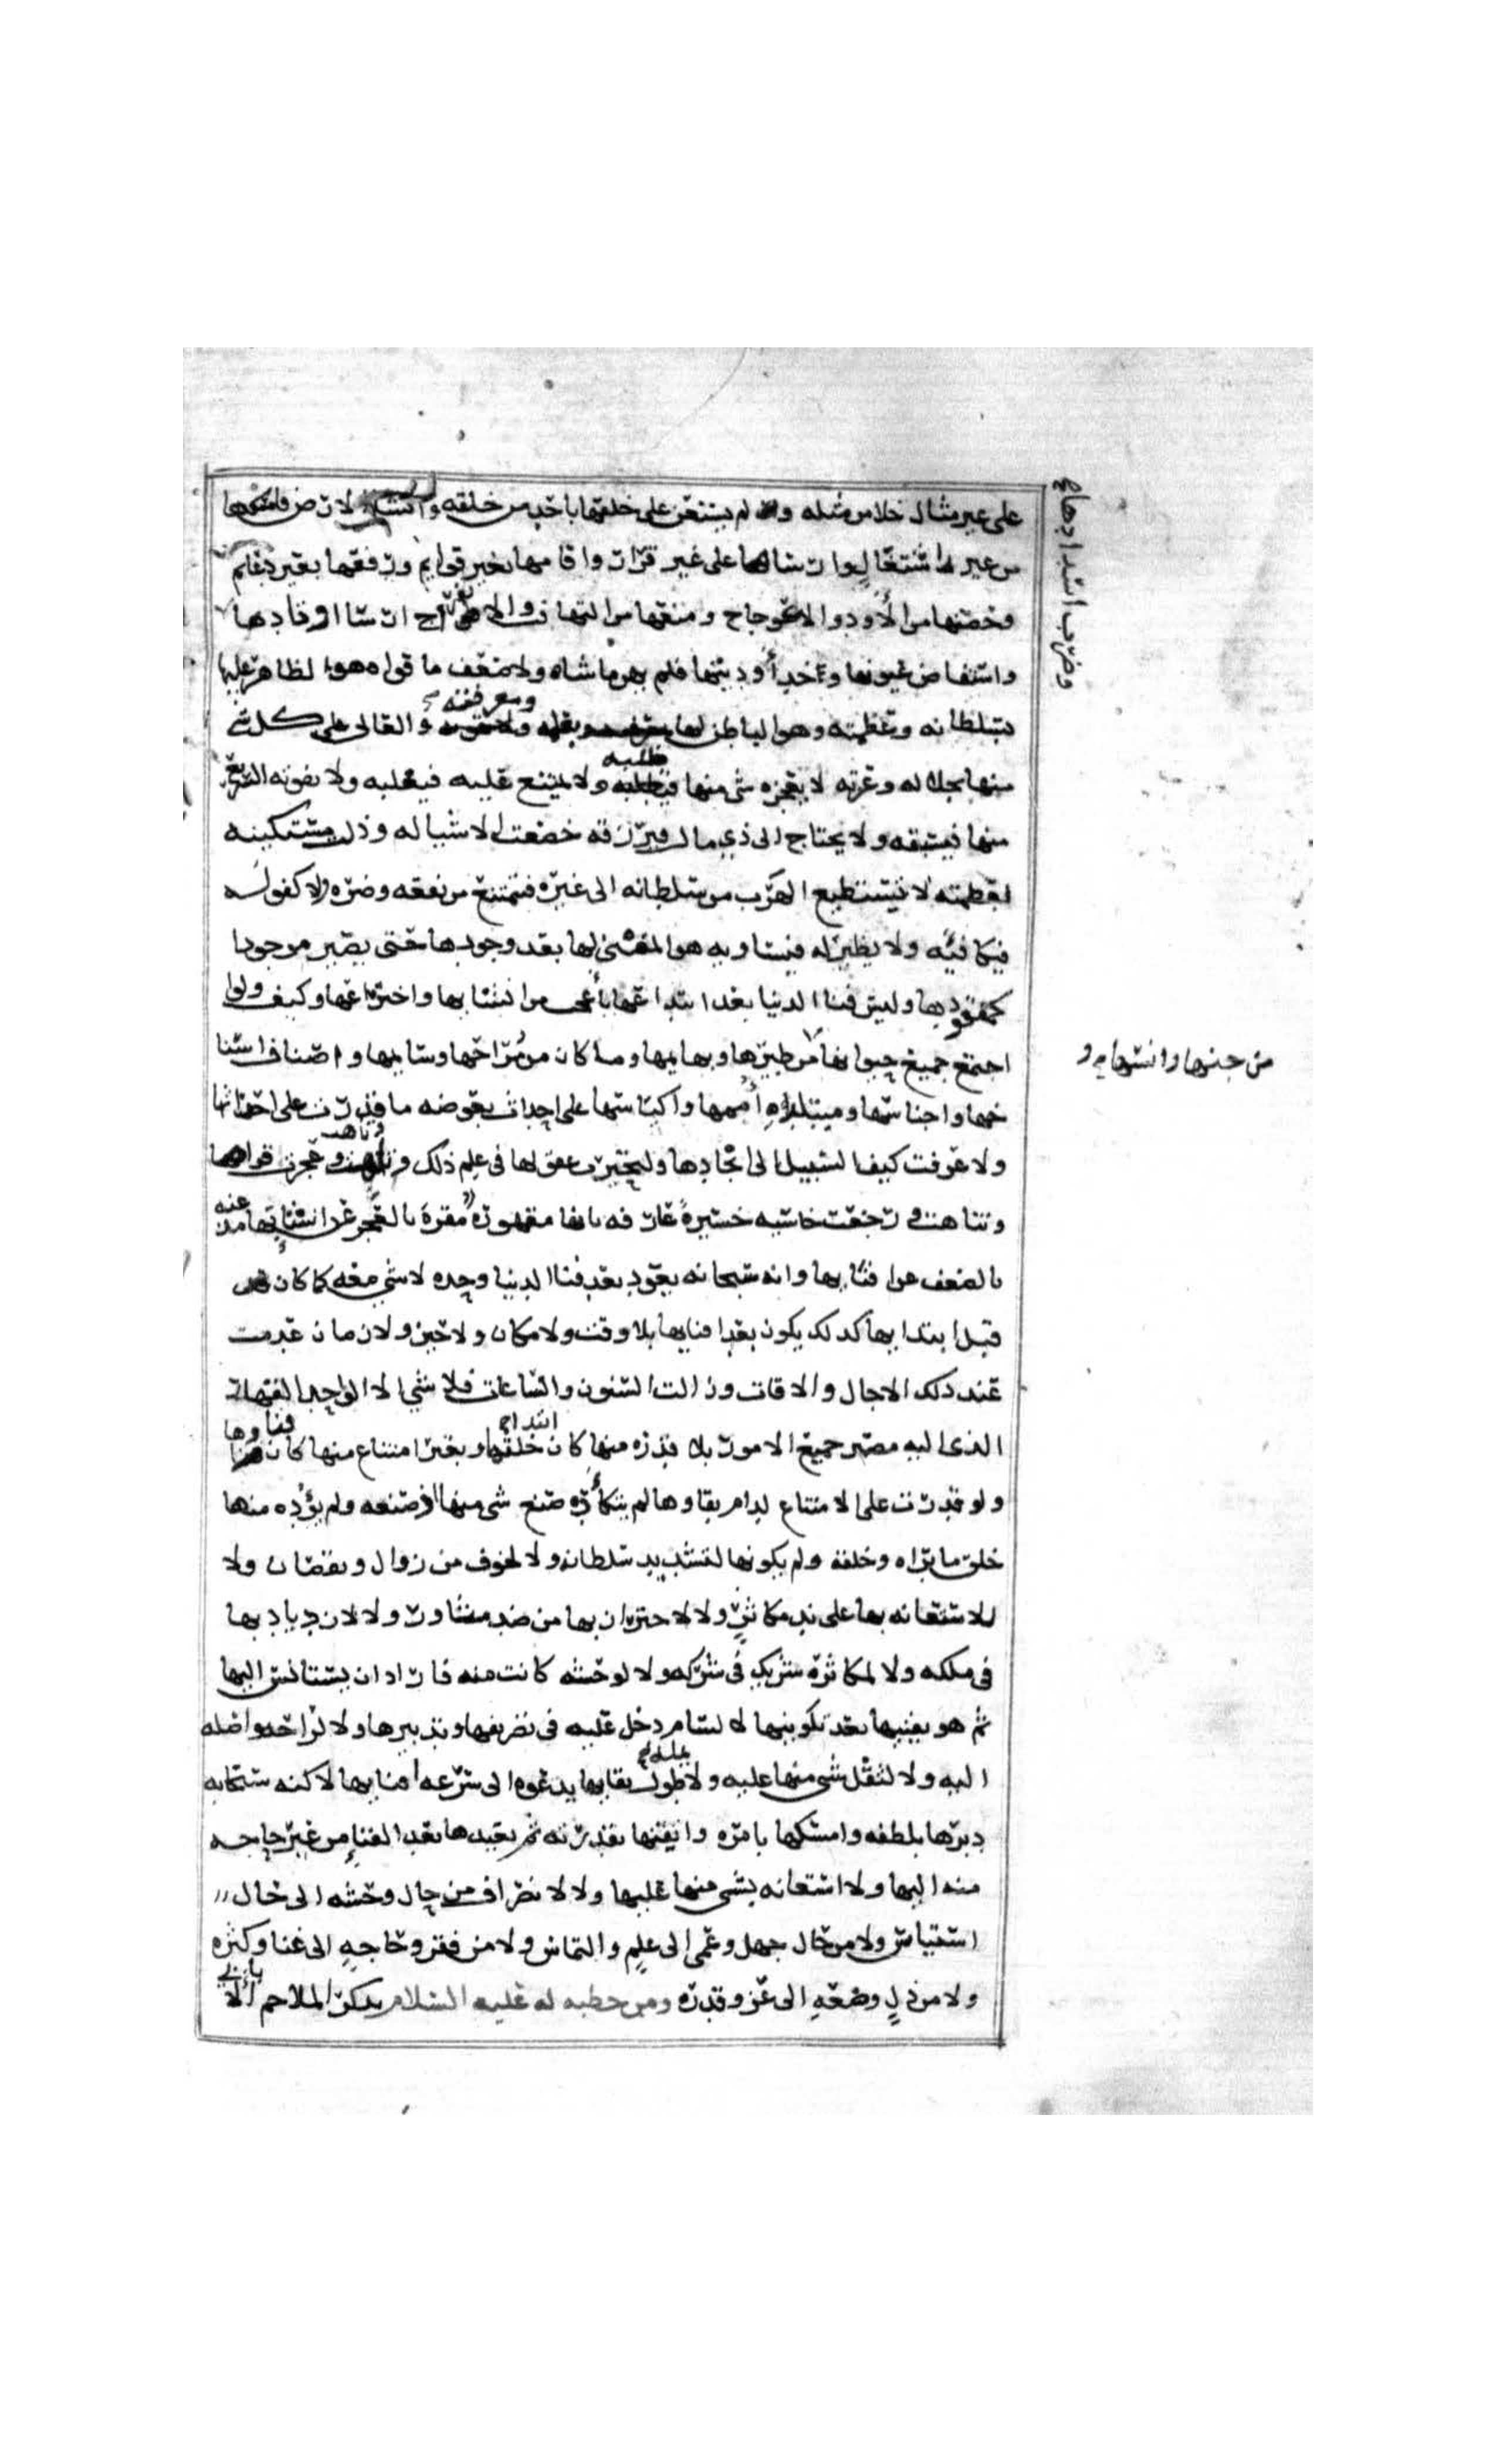 على غير مثال خلا من مثله ولم يستعن على خلقها باحد من خلقه وانشا الارض فامسكها
من غير اشتغال وارساها على غير قرار واقامها بغير قوايم ورفعها بغير دعايم
وحصنها من الأود والاعوجاج ومنعها من التهافت والانفراج ارسا اوتادها
وضرب اسدادها
واستفاض عيونها وخد أوديتها فلم يهن ما بناه ولا ضعف ما قواه هو الظاهر عليها
بسلطانه وعظمته وهو الباطن لها بعلمه ومعرفته والعالي على كل شي
منها بجلاله وعزته لا يعجزه شي منها طلبه ولا يمتنع عليه فيغلبه ولا يفوته السريع
منها فيسبقه ولا يحتاج الى ذي مال فيرزقه خضعت الاشيا له وذلت مستكينه
لعظمته لا تستطيع الهرب من سلطانه الى غيره فتمتنع من نفعه وضره ولا كفو له
فيكافيه ولا نظير له فيساويه هو المفني لها بعد وجودها حتى يصير موجودها
كمفقودها وليس فنا الدنيا بعد ابتداعها بأعجب من انشايها واختراعها وكيف ولو
اجتمع جميع حيوانها من طيرها وبهايمها وما كان من مراحها وسايمها واصناف اسنا
من جنها وانسها و
خها واجناسها ومتبلده أممها واكياسها على احداث بعوضه ما قدرت على احداثها
ولا عرفت كيف السبيل الى ايجادها ولتحيرت عقولها في علم ذلك وتاهت وعجزت قواها
وتناهت ورجعت خاسيه حسيرة عارفه بانها مقهورة مقرة بالعجز عن انشايها مذعنه
بالضعف عن افنايها وانه سبحانه يعود بعد فنا الدنيا وحده لا شي معه كما كان
قبل ابتدايها كذلك يكون بعد افنايها بلا وقت ولا مكان ولا حين ولا زمان عدمت
عند ذلك الاجال والاوقات وزالت السنون والساعات فلا شي الا الواحد القهار
الذي اليه مصير جميع الامور بلا قدره منها كان ابتداء خلقها وبغير امتناع منها كان فناوها
ولو قدرت على الامتناع لدام بقاوها لم يتكأده صنع شي منها اذ صنعه ولم يؤده منها
خلق ما براه وخلقه ولم يكونها لتشديد سلطانه ولا لخوف من زوال ونقصان ولا
للاستعانه بها على ند مكاثر ولا للاحتراز بها من ضد مثاور ولا للازدياد بها
في ملكه ولا لمكاثرة شريك في شركه ولا لوحشه كانت منه فاراد ان يستانس اليها
ثم هو يفنيها بعد تكوينها لا لسام دخل عليه في تصريفها وتدبيرها ولا لراحه واصله
اليه ولا لثقل شي منها عليه ولا يمله طول بقايها يدعوه الى سرعه افنايها لاكنه سبحانه
دبرها بلطفه وامسكها بامره واتقنها بقدرته ثم يعيدها بعد الفنا من غير حاجه
منه اليها ولا استعانه بشي منها عليها ولا لانصراف من حال وحشه الى حال
استيناس ولا من حال جهل وعمى الى علم والتماس ولا من فقر وحاجه الى غنا وكثره
ولا من ذل وضعه الى عز وقدره ومن خطبه له عليه السلام يذكر الملاحم ألا بأبي